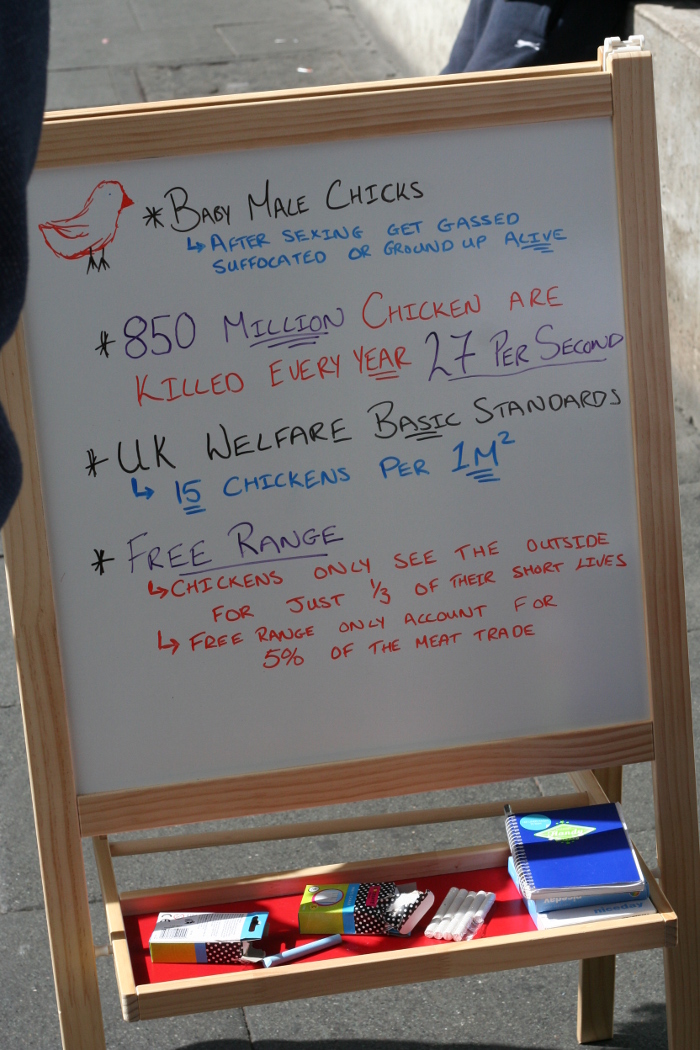 * BABY MALE CHICKS
↳ AFTER SEXING GET GASSED
SUFFOCATED OR GROUND UP ALIVE
* 850 MILLION CHICKEN ARE
KILLED EVERY YEAR 27 PER SECOND
* UK WELFARE BASIC STANDARDS
↳ 15 CHICKENS PER 1M²
* FREE RANGE
↳ CHICKENS ONLY SEE THE OUTSIDE
FOR JUST 1/3 OF THEIR SHORT LIVES
↳ FREE RANGE ONLY ACCOUNT FOR
5% OF THE MEAT TRADE